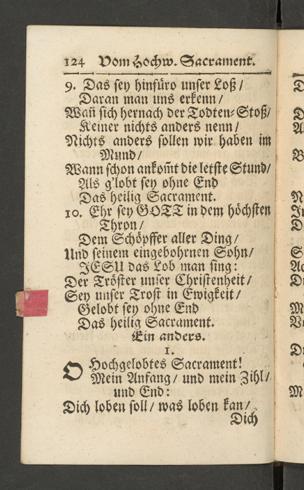 124 Vom Hochw. Sacrament.
9. Das sey hinfüro unser Loß/
Daran man uns erkenn/
Wañ sich hernach der Todten-Stoß/
Keiner nichts anders nenn/
Nichts anders sollen wir haben im
Mund/
Wann schon ankom̃t die letste Stund/
Als g'lobt sey ohne End
Das heilig Sacrament.
10. Ehr sey GOTT in dem höchsten
Thron/
Dem Schöpffer aller Ding/
Und seinem eingebohrnen Sohn/
JESU das Lob man sing:
Der Tröster unser Christenheit/
Sey unser Trost in Ewigkeit/
Gelobt sey ohne End
Das heilig Sacrament.
Ein anders.
1.
O Hochgelobtes Sacrament!
Mein Anfang/ und mein Zihl/
und End:
Dich loben soll/ was loben kan/
Dich